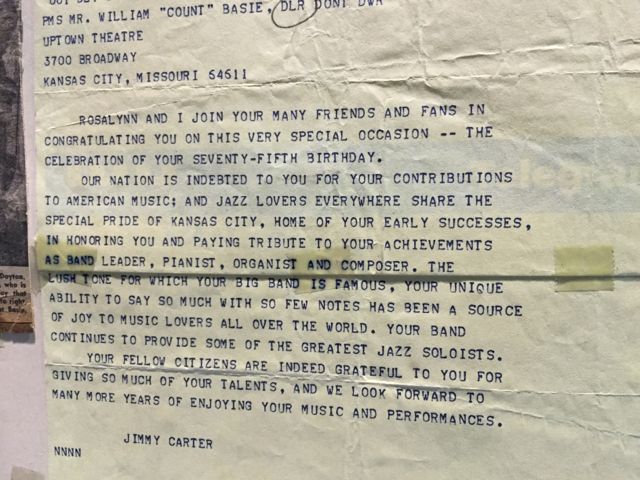 PMS MR. WILLIAM "COUNT" BASIE, DLR DONT DWR
UPTOWN THEATRE
3700 BROADWAY
KANSAS CITY, MISSOURI 64611
ROSALYNN AND I JOIN YOUR MANY FRIENDS AND FANS IN
CONGRATULATING YOU ON THIS VERY SPECIAL OCCASION -- THE
CELEBRATION OF YOUR SEVENTY-FIFTH BIRTHDAY.
OUR NATION IS INDEBTED TO YOU FOR YOUR CONTRIBUTIONS
TO AMERICAN MUSIC; AND JAZZ LOVERS EVERYWHERE SHARE THE
SPECIAL PRIDE OF KANSAS CITY, HOME OF YOUR EARLY SUCCESSES,
IN HONORING YOU AND PAYING TRIBUTE TO YOUR ACHIEVEMENTS
AS BAND LEADER, PIANIST, ORGANIST AND COMPOSER. THE
LUSH TONE FOR WHICH YOUR BIG BAND IS FAMOUS, YOUR UNIQUE
ABILITY TO SAY SO MUCH WITH SO FEW NOTES HAS BEEN A SOURCE
OF JOY TO MUSIC LOVERS ALL OVER THE WORLD. YOUR BAND
CONTINUES TO PROVIDE SOME OF THE GREATEST JAZZ SOLOISTS.
YOUR FELLOW CITIZENS ARE INDEED GRATEFUL TO YOU FOR
GIVING SO MUCH OF YOUR TALENTS, AND WE LOOK FORWARD TO
MANY MORE YEARS OF ENJOYING YOUR MUSIC AND PERFORMANCES.
JIMMY CARTER
NNNN
Dayton,
who is
that
right
Basie,